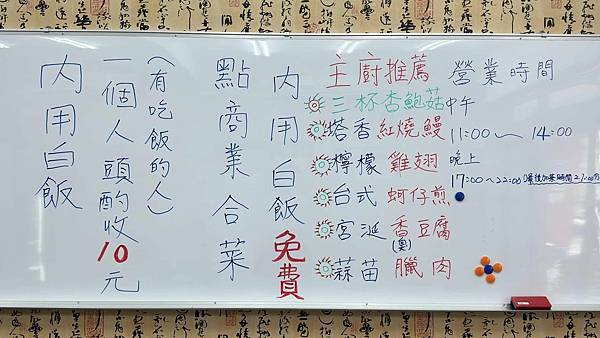 內用白飯
一個人頭酌收10元
(有吃飯的人)
點商業合菜
內用白飯免費
主廚推薦
三杯杏鮑菇
塔香紅燒鰻
檸檬雞翅
台式蚵仔煎
宮涎香豆腐
(臭)
蒜苗臘肉
營業時間
中午
11:00~14:00
晚上
17:00~22:00